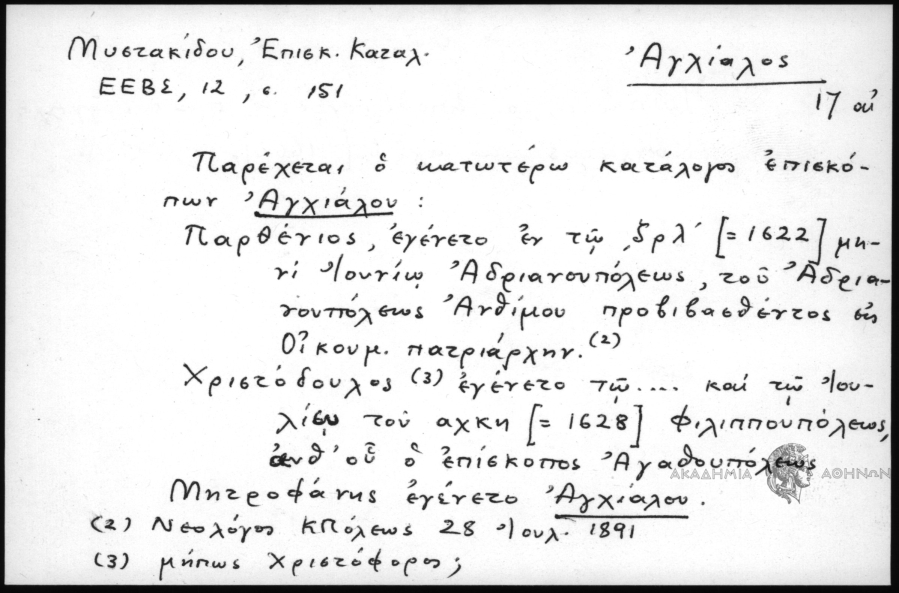 Μυστακίδου, Ἐπισκ. Καταλ.
ΕΕΒΣ, 12, σ. 151
Ἀγχίαλος
17 αἰ
Παρέχεται ὁ κατωτέρω κατάλογος ἐπισκό-
πων Ἀγχιάλου :
Παρθένιος, ἐγένετο ἐν τῷ ͵ζρλʹ [= 1622] μη-
νὶ Ἰουνίῳ Ἀδριανουπόλεως, τοῦ Ἀδρια-
νουπόλεως Ἀνθίμου προβιβασθέντος εἰς
Οἰκουμ. πατριάρχην. (2)
Χριστόδουλος (3) ἐγένετο τῷ .... καὶ τῷ Ἰου-
λίῳ τοῦ αχκη [= 1628] Φιλιππουπόλεως,
ἀνθ' οὗ ὁ ἐπίσκοπος Ἀγαθουπόλεως
Μητροφάνης ἐγένετο Ἀγχιάλου.
(2) Νεολόγος ΚΠόλεως 28 Ἰουλ. 1891
(3) μήπως Χριστόφορος;
ΑΚΑΔΗΜΙΑ ΑΘΗΝΩΝ